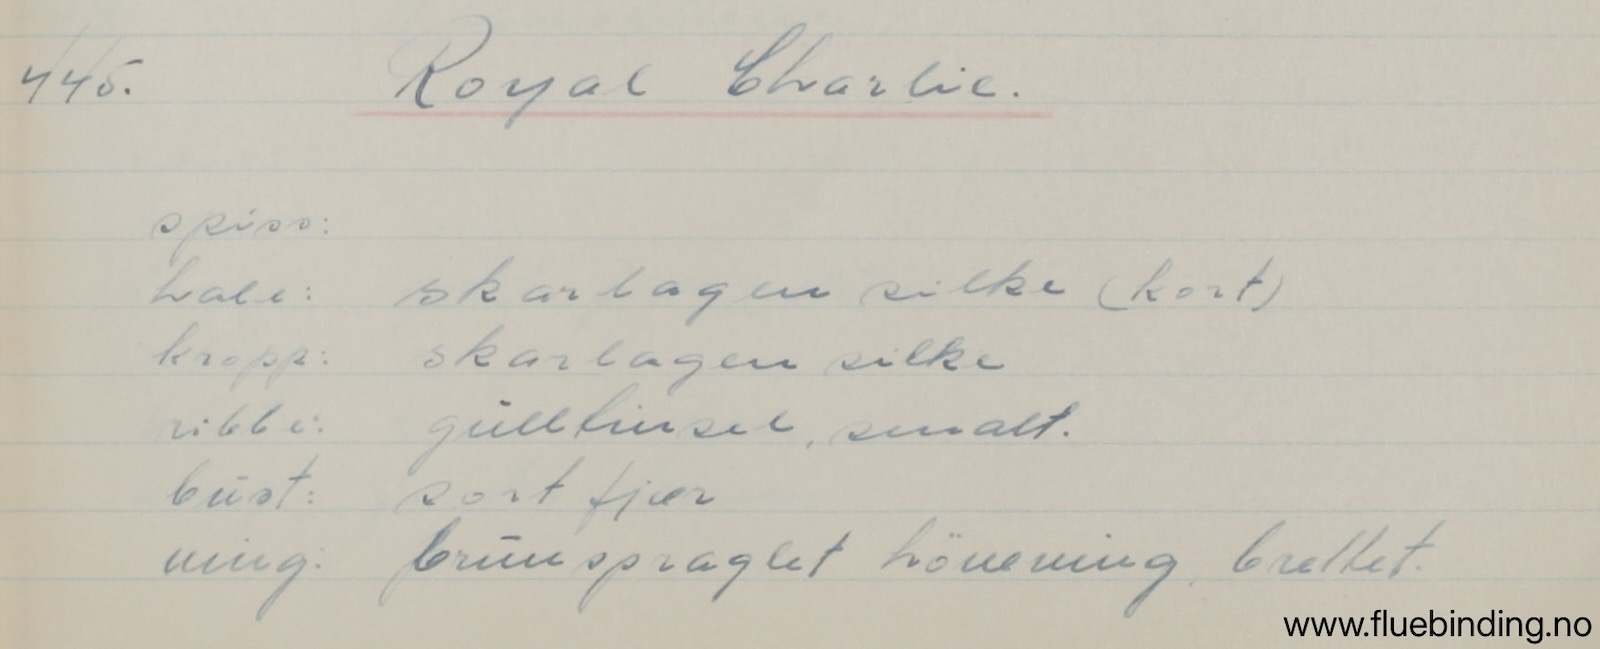 445. Royal Charlie.
spiss:
hale: skarlagen silke (kort)
kropp: skarlagen silke
ribbe: gülltinsel, smalt.
büst: sort fjær
ving: brünspraglet höneving, brettet.
www.fluebinding.no